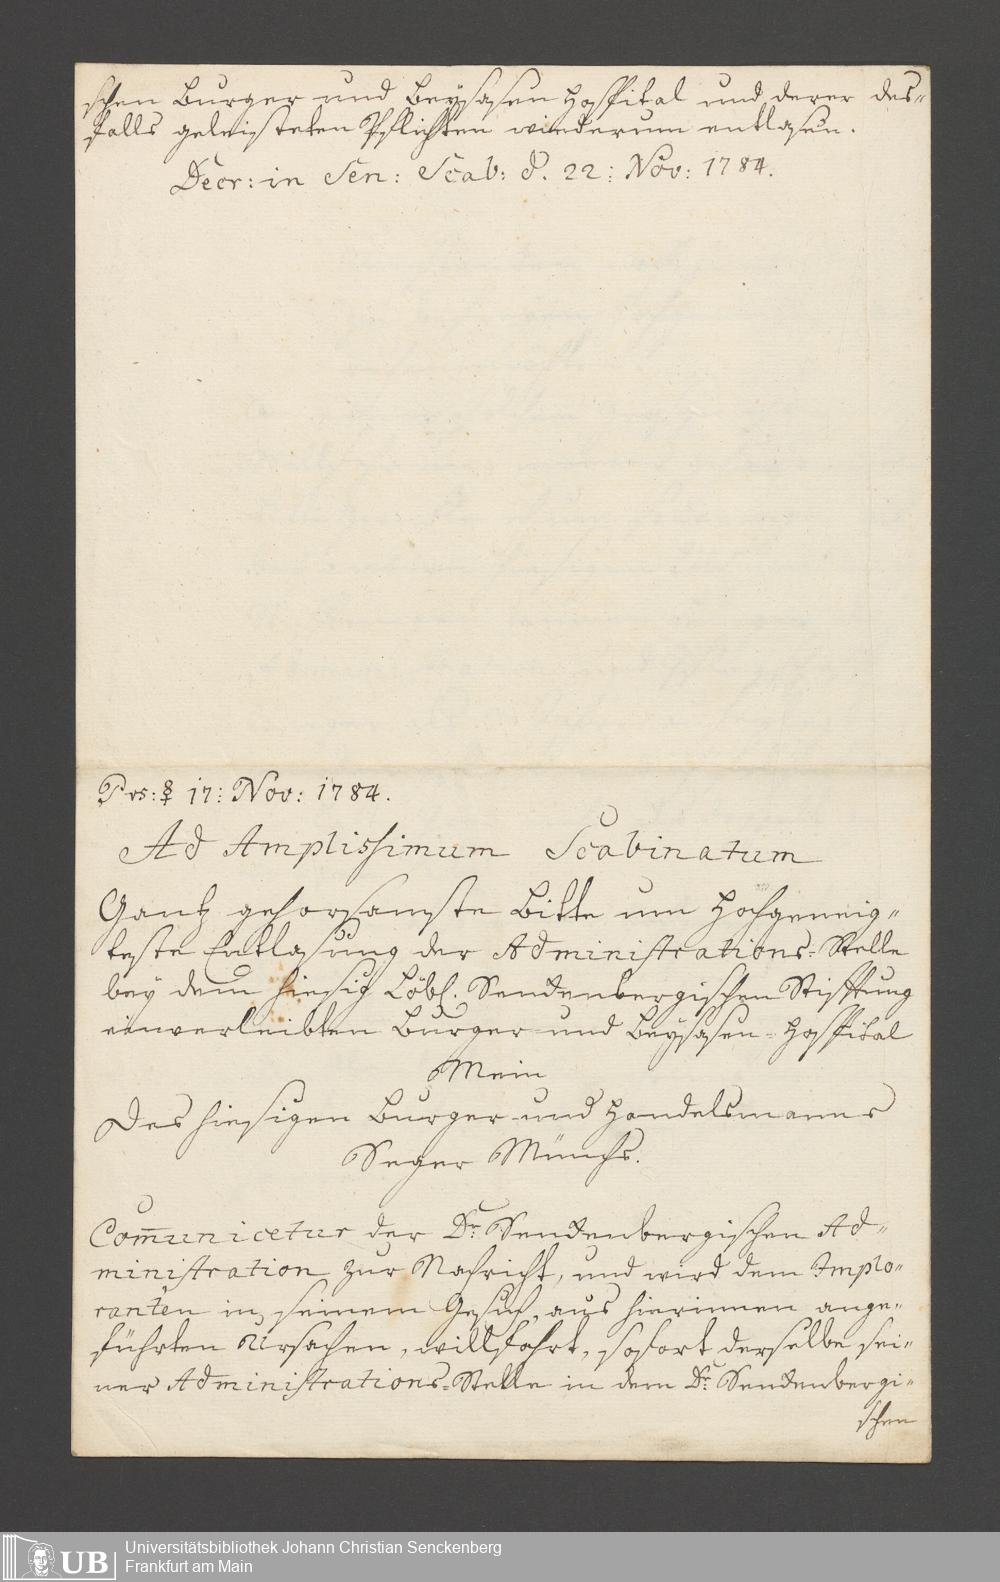 schen Burger und Beysasen Hospital und derer des-
falls geleisteten Pflichten wiederum entlasen.
Decr: in Sen: Scab: d. 22: Nov: 1784.
Prs: ☿ 17: Nov: 1784.
Ad Amplissimum Scabinatum
Gantz gehorsamste Bitte um Hochgeneig-
teste Entlasung der Administrations-Stelle
bey dem hiesig Löbl. Senckenbergischen Stifftung
einverleibten Burger und Beysasen-Hospital
Mein
Des hiesigen Burger und Handelsmanns
Seger Münchs.
Com̄unicetur der Dr. Senckenbergischen Ad-
ministration zur Nachricht, und wird dem Implo-
ranten in seinem Gesuch, aus hierinnen ange-
führten Ursachen, willfahrt, sofort derselbe sei-
ner Administrations-Stelle in dem Dr. Senckenbergi-
schen
UB
Universitätsbibliothek Johann Christian Senckenberg
Frankfurt am Main